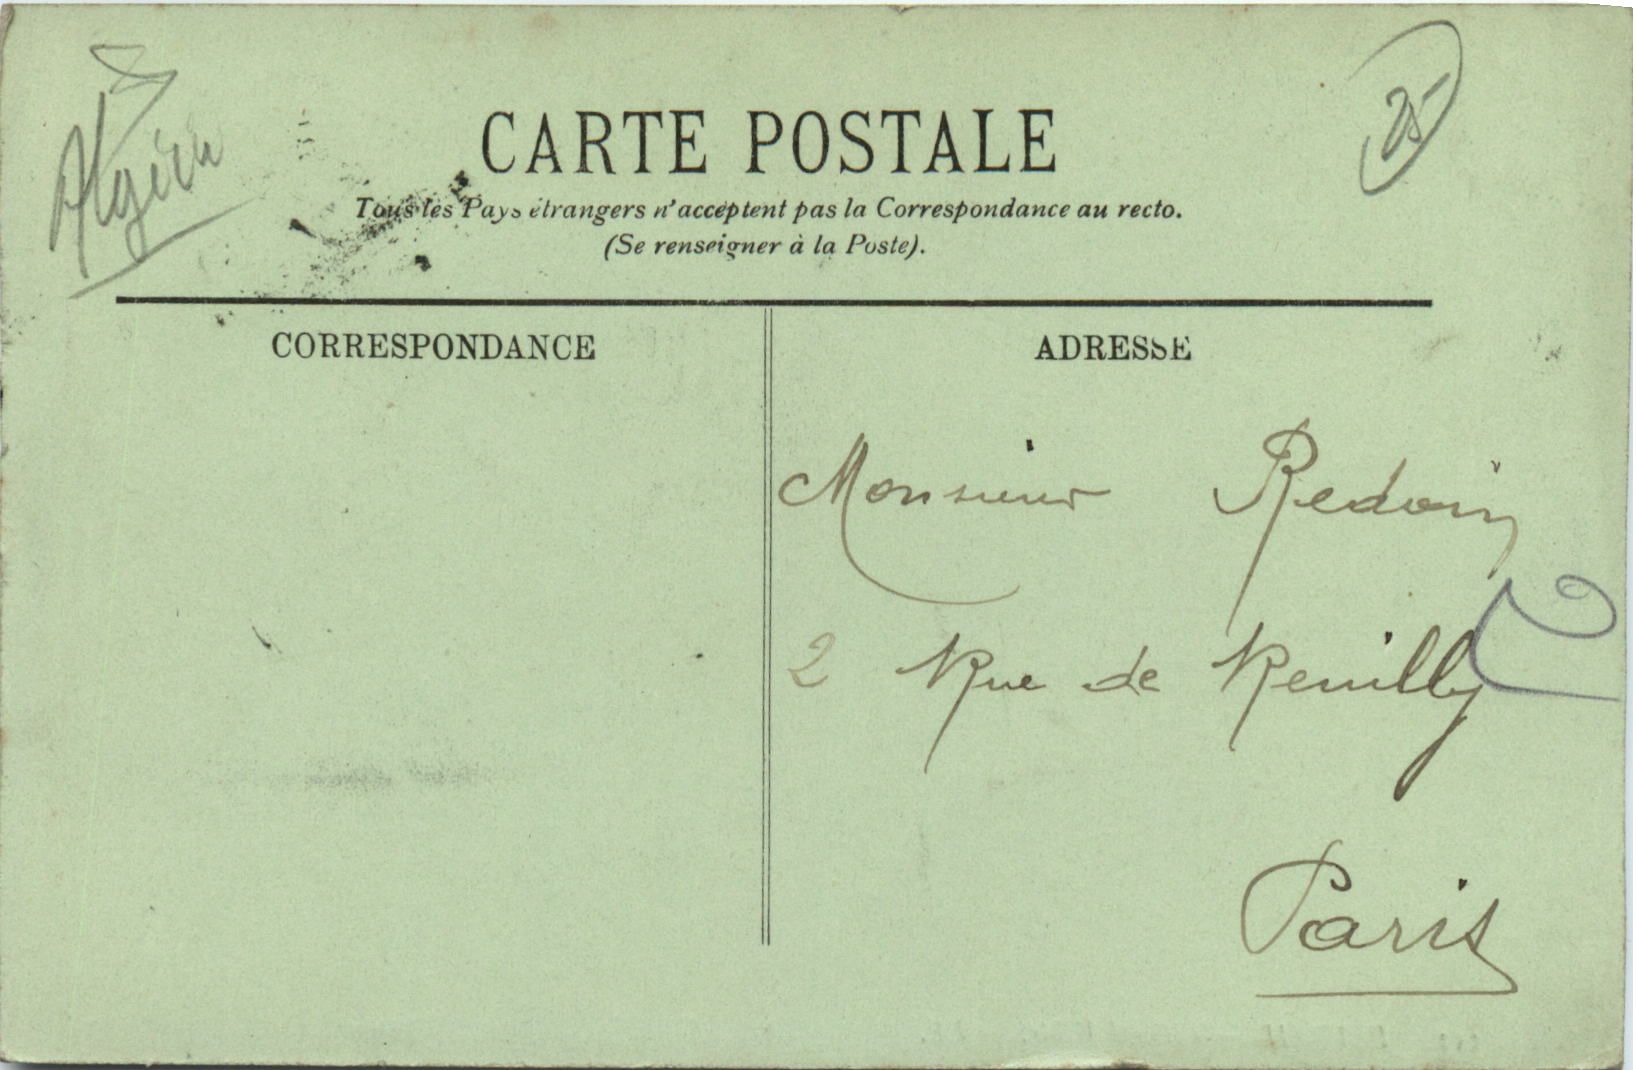 Algérie
25
CARTE POSTALE
Tous les Pays étrangers n'acceptent pas la Correspondance au recto.
(Se renseigner à la Poste).
CORRESPONDANCE
ADRESSE
Monsieur Redoin
2 Rue de Reuilly
Paris